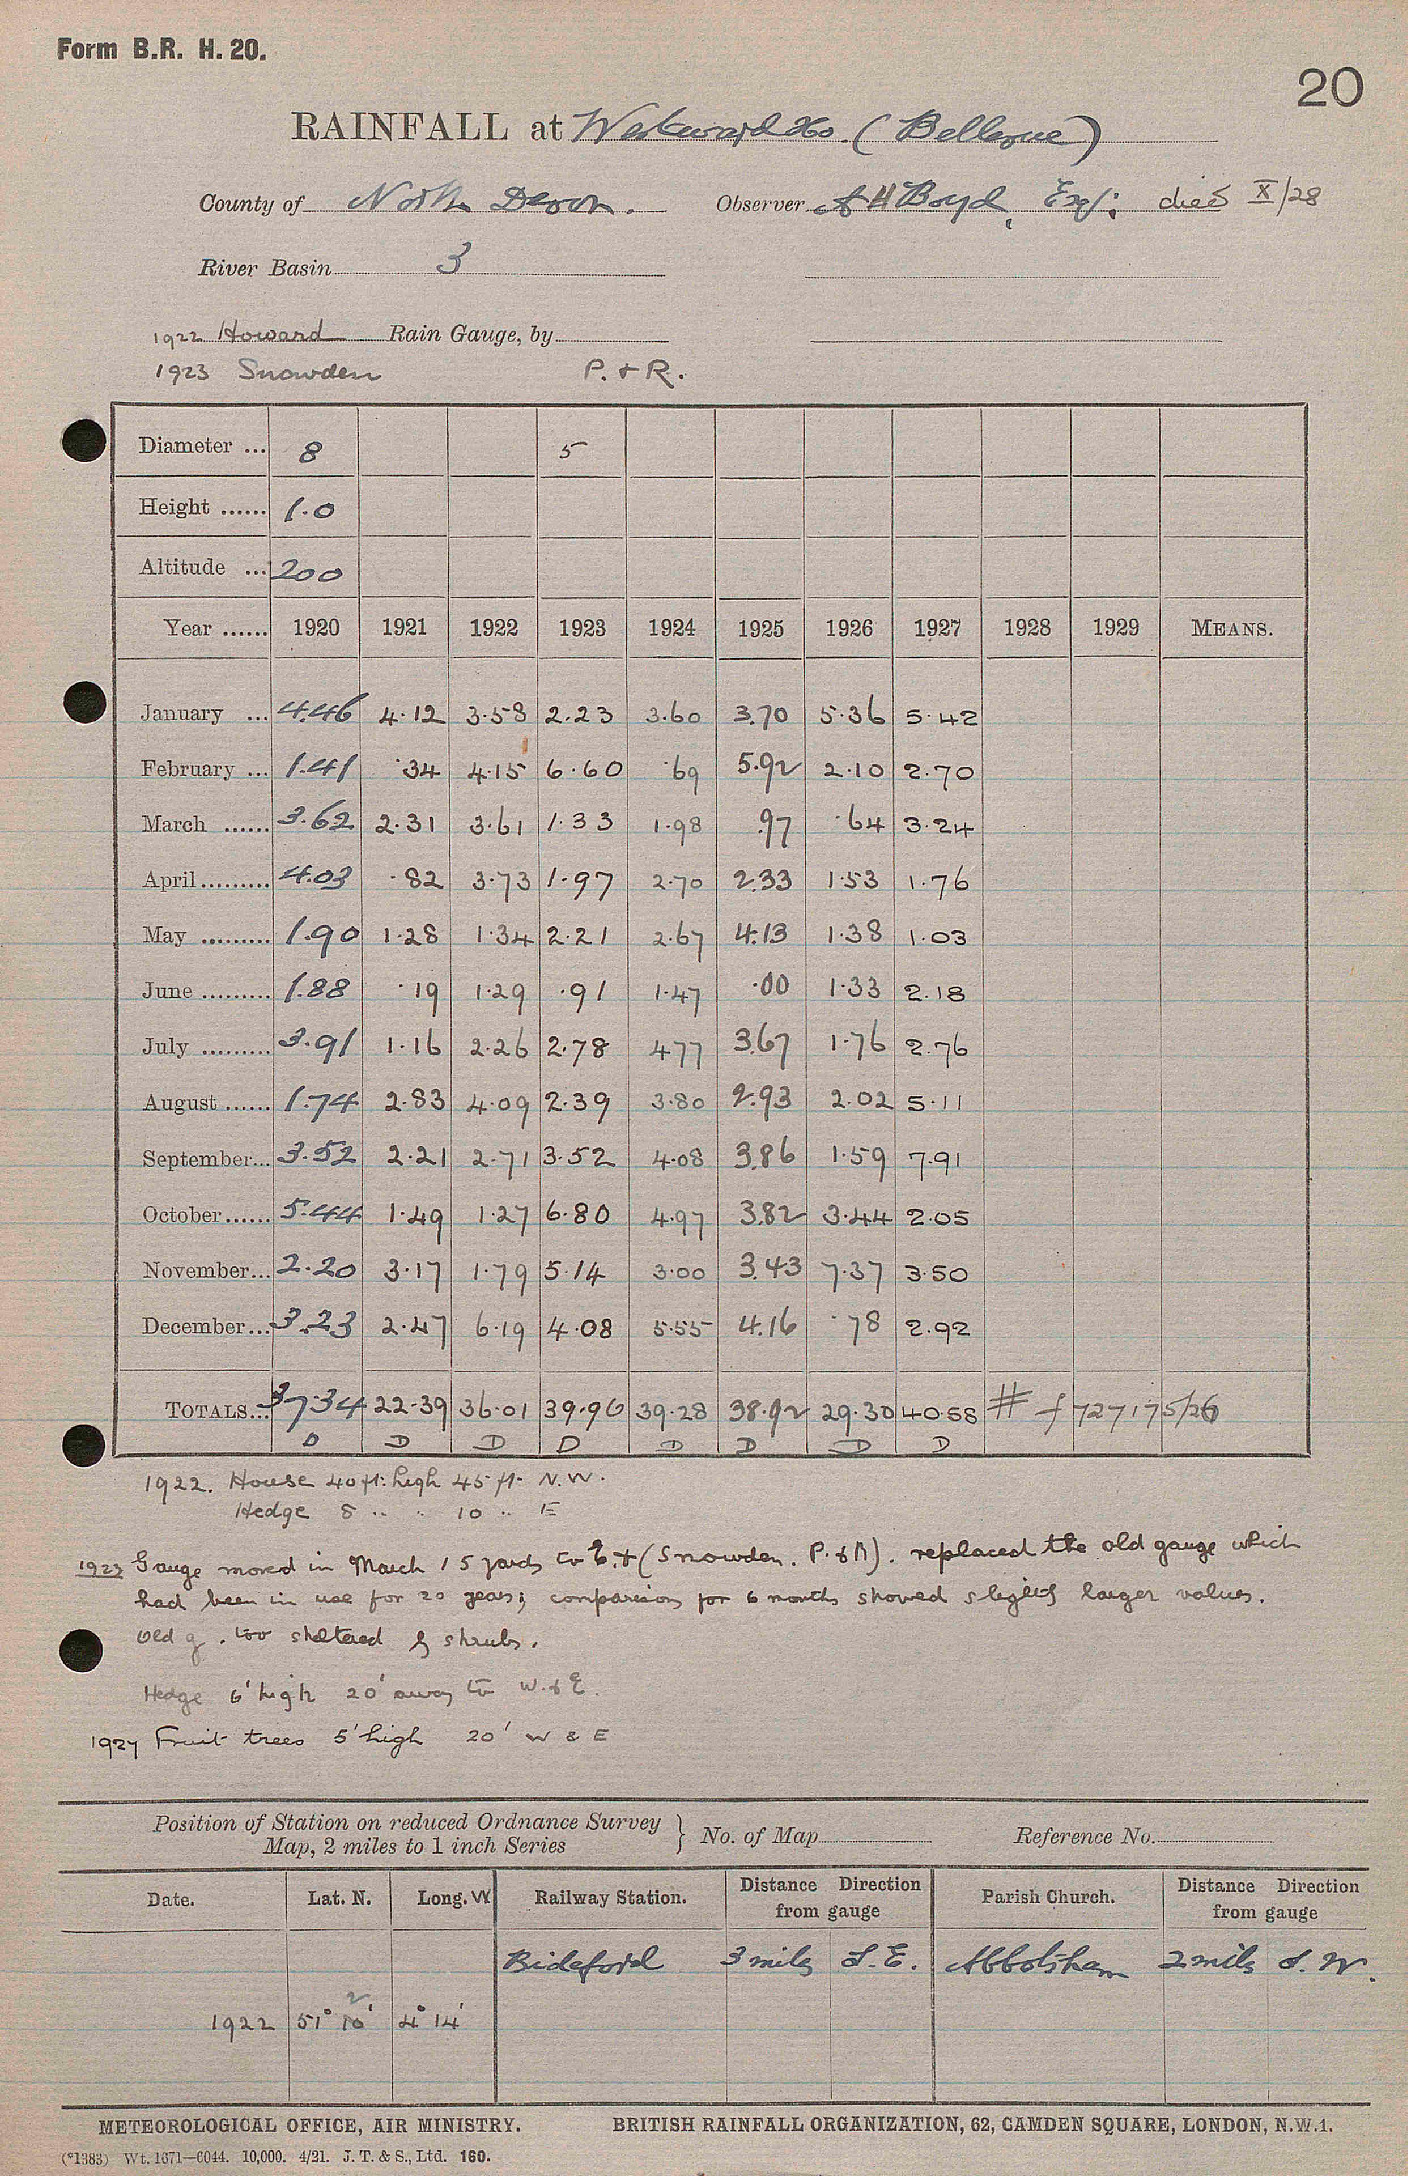 Form B.R. H. 20.
20
RAINFALL at Westward Ho. (Bellevue)
County of North Devon. Observer A H Boyd, Esq; died X/28
River Basin 3
1922 Howard Rain Gauge, by
1923 Snowden P. & R.
Diameter ... 8 5
Height ...... 1.0
Altitude ... 200
Year ...... 1920 1921 1922 1923 1924 1925 1926 1927 1928 1929 MEANS.
January ... 4.46 4.12 3.58 2.23 3.60 3.70 5.36 5.42
February ... 1.41 .34 4.15 6.60 .69 5.92 2.10 2.70
March ...... 3.62 2.31 3.61 1.33 1.98 .97 .64 3.24
April ......... 4.03 .82 3.73 1.97 2.70 2.33 1.53 1.76
May ......... 1.90 1.28 1.34 2.21 2.67 4.13 1.38 1.03
June ......... 1.88 .19 1.29 .91 1.47 .00 1.33 2.18
July ......... 3.91 1.16 2.26 2.78 4.77 3.67 1.76 2.76
August ...... 1.74 2.83 4.09 2.39 3.80 2.93 2.02 5.11
September... 3.52 2.21 2.71 3.52 4.08 3.86 1.59 7.91
October ...... 5.44 1.49 1.27 6.80 4.97 3.82 3.44 2.05
November... 2.20 3.17 1.79 5.14 3.00 3.43 7.37 3.50
December... 3.23 2.47 6.19 4.08 5.55 4.16 .78 2.92
TOTALS... 37.34 22.39 36.01 39.96 39.28 38.92 29.30 40.58 # f 727175/26
D D D D D D D D
1922. House 40 ft. high 45 ft. N.W.
Hedge 8 .. . 10 .. E
1923 Gauge moved in March 15 yards to E. & (Snowden. P. & R). replaced the old gauge which
had been in use for 20 years; comparison for 6 months showed slightly larger values.
Old g. too sheltered by shrubs.
Hedge 6' high 20' away to W. & E.
1927 Fruit trees 5' high 20' W & E
Position of Station on reduced Ordnance Survey
Map, 2 miles to 1 inch Series } No. of Map Reference No.
Date. Lat. N. Long. W. Railway Station. Distance Direction from gauge Parish Church. Distance Direction from gauge
Bideford 3 miles S.E. Abbotsham 2 miles S.W.
2
1922 51° 10' 4° 14'
METEOROLOGICAL OFFICE, AIR MINISTRY. BRITISH RAINFALL ORGANIZATION, 62, CAMDEN SQUARE, LONDON, N.W.1.
(*1383) Wt. 1671—6044. 10,000. 4/21. J. T. & S., Ltd. 160.